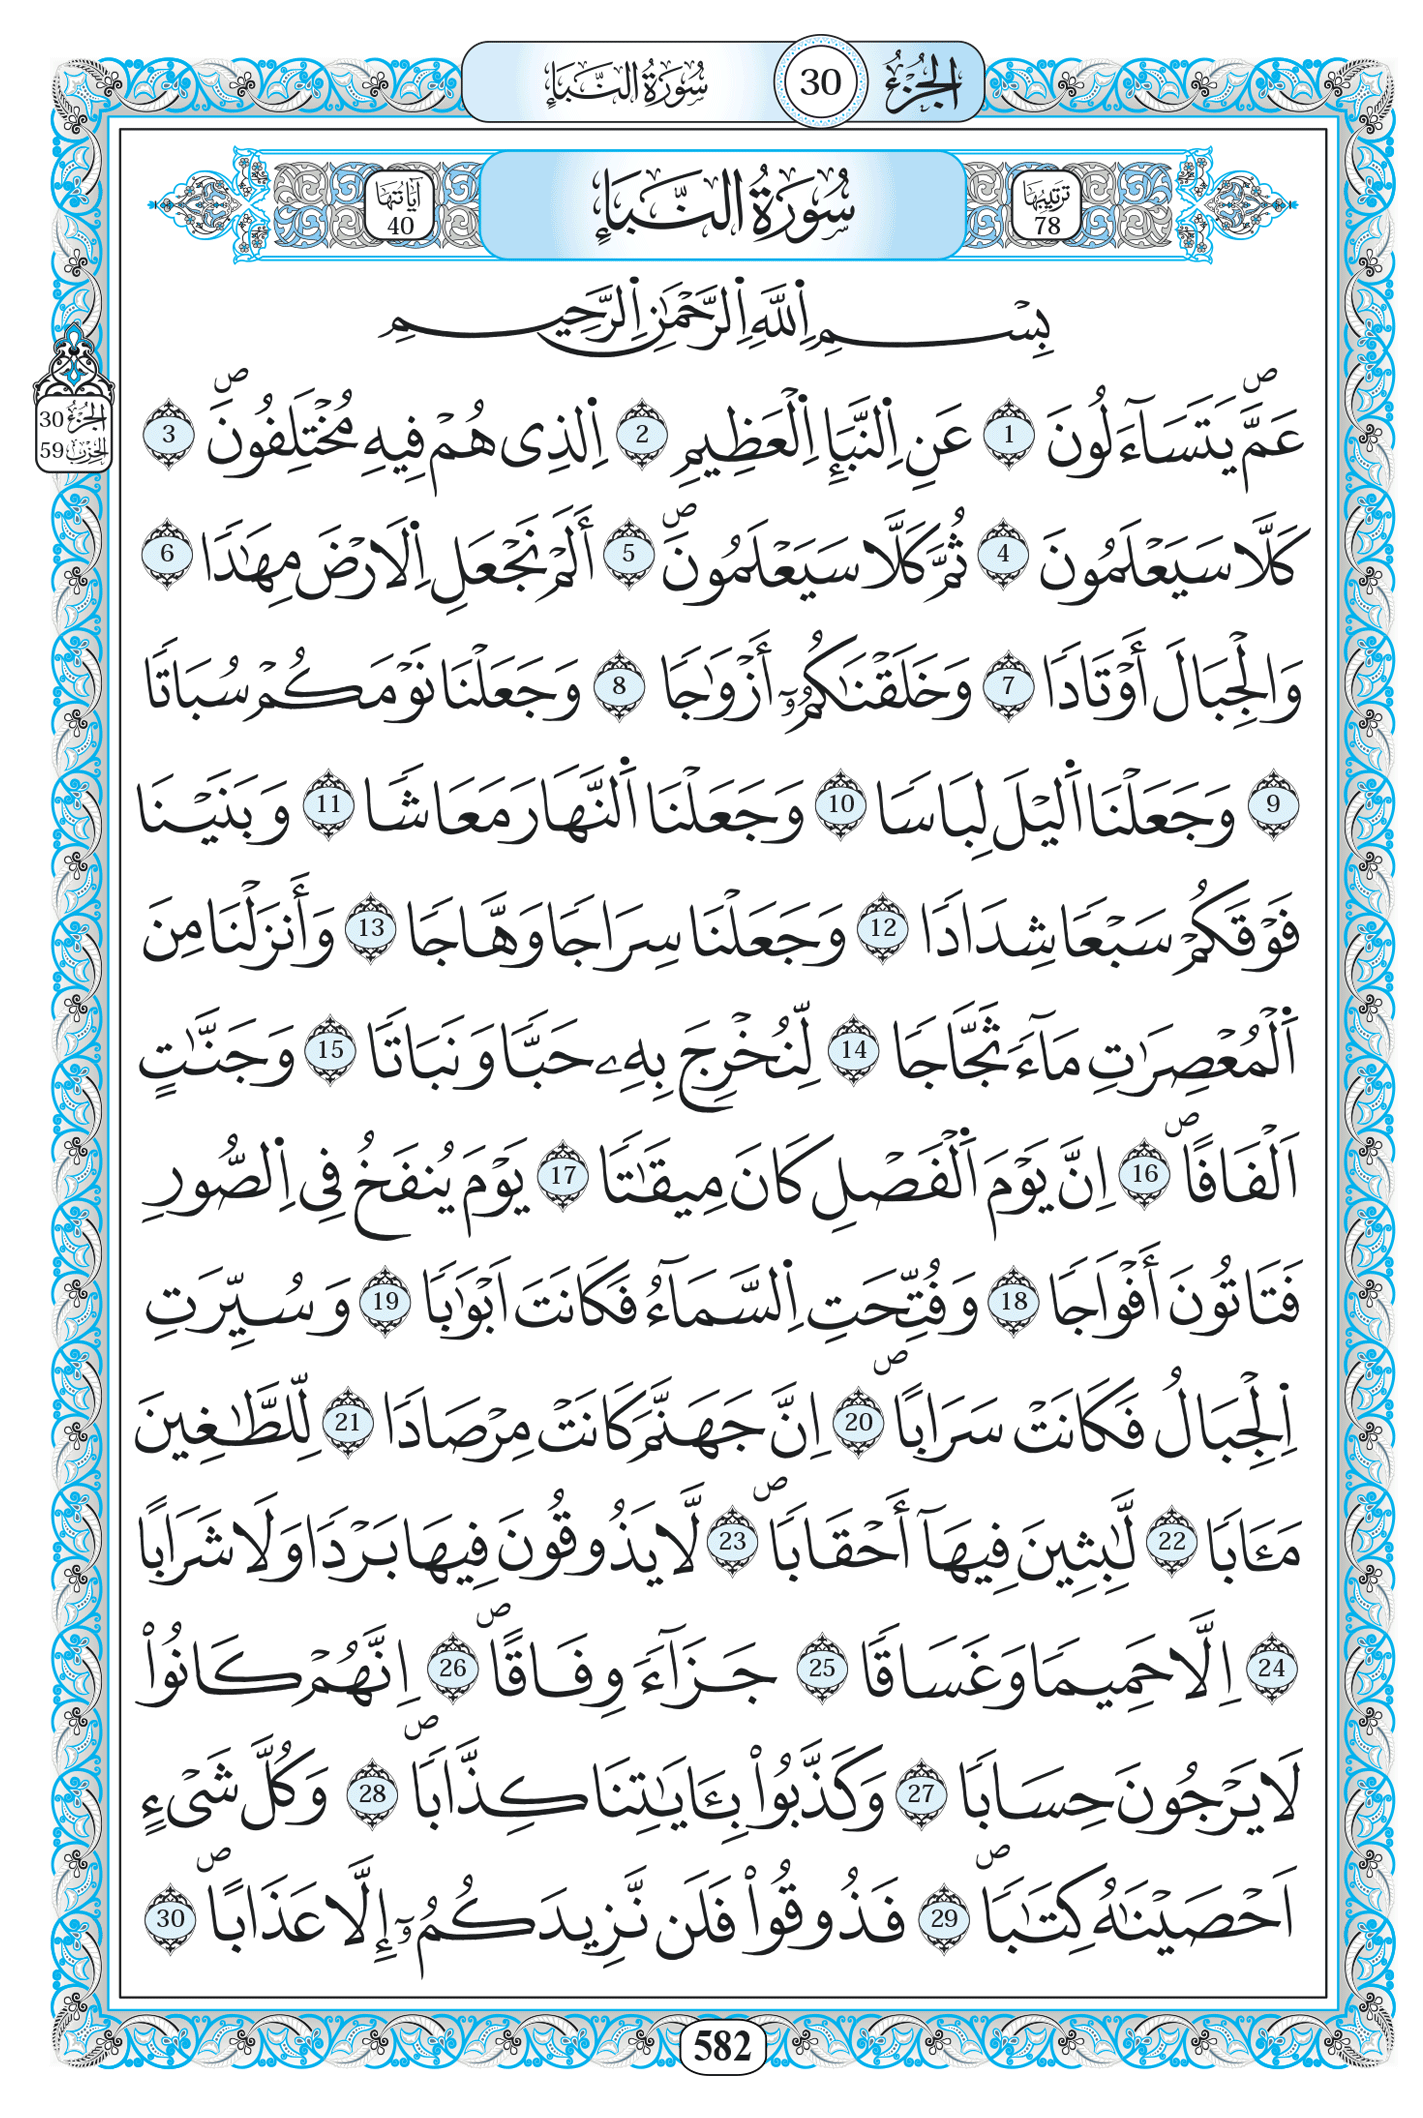 الجزء 30 سورة النبإ
ترتيبها 78 سُورَةُ النَّبَإِ آياتها 40
بِسْمِ اِللَّهِ اِلرَّحْمَٰنِ اِلرَّحِيمِ
الجزء 30
الحزب 59
عَمَّ يَتَسَآءَلُونَۖ 1 عَنِ اِلنَّبَإِ اِلْعَظِيمِ 2 اِلذِى هُمْ فِيهِ مُخْتَلِفُونَۖ 3
كَلَّا سَيَعْلَمُونَ 4 ثُمَّ كَلَّا سَيَعْلَمُونَۖ 5 أَلَمْ نَجْعَلِ اِلَارْضَ مِهَٰدًا 6
وَالْجِبَالَ أَوْتَادًا 7 وَخَلَقْنَٰكُمُۥٓ أَزْوَٰجًا 8 وَجَعَلْنَا نَوْمَكُمْ سُبَاتًا
9 وَجَعَلْنَا اَليْلَ لِبَاسًا 10 وَجَعَلْنَا اَلنَّهَارَ مَعَاشًا 11 وَبَنَيْنَا
فَوْقَكُمْ سَبْعًا شِدَادًا 12 وَجَعَلْنَا سِرَاجًا وَهَّاجًا 13 وَأَنزَلْنَا مِنَ
اَلْمُعْصِرَٰتِ مَآءً ثَجَّاجًا 14 لِّنُخْرِجَ بِهِۦ حَبًّا وَنَبَاتًا 15 وَجَنَّٰتٍ
اَلْفَافًاۖ 16 اِنَّ يَوْمَ اَلْفَصْلِ كَانَ مِيقَٰتًا 17 يَوْمَ يُنفَخُ فِى اِلصُّورِ
فَتَاتُونَ أَفْوَاجًا 18 وَفُتِّحَتِ اِلسَّمَآءُ فَكَانَتَ اَبْوَٰبًا 19 وَسُيِّرَتِ
اِلْجِبَالُ فَكَانَتْ سَرَابًاۖ 20 اِنَّ جَهَنَّمَ كَانَتْ مِرْصَادًا 21 لِّلطَّٰغِينَ
مَـَٔابًا 22 لَّٰبِثِينَ فِيهَآ أَحْقَابًاۖ 23 لَّا يَذُوقُونَ فِيهَا بَرْدًا وَلَا شَرَابًا
24 اِلَّا حَمِيمًا وَغَسَاقًا 25 جَزَآءً وِفَاقًاۖ 26 اِنَّهُمْ كَانُواْ
لَا يَرْجُونَ حِسَابًا 27 وَكَذَّبُواْ بِـَٔايَٰتِنَا كِذَّابًاۖ 28 وَكُلَّ شَىْءٍ
اَحْصَيْنَٰهُ كِتَٰبًاۖ 29 فَذُوقُواْ فَلَن نَّزِيدَكُمُۥٓ إِلَّا عَذَابًاۖ 30
582